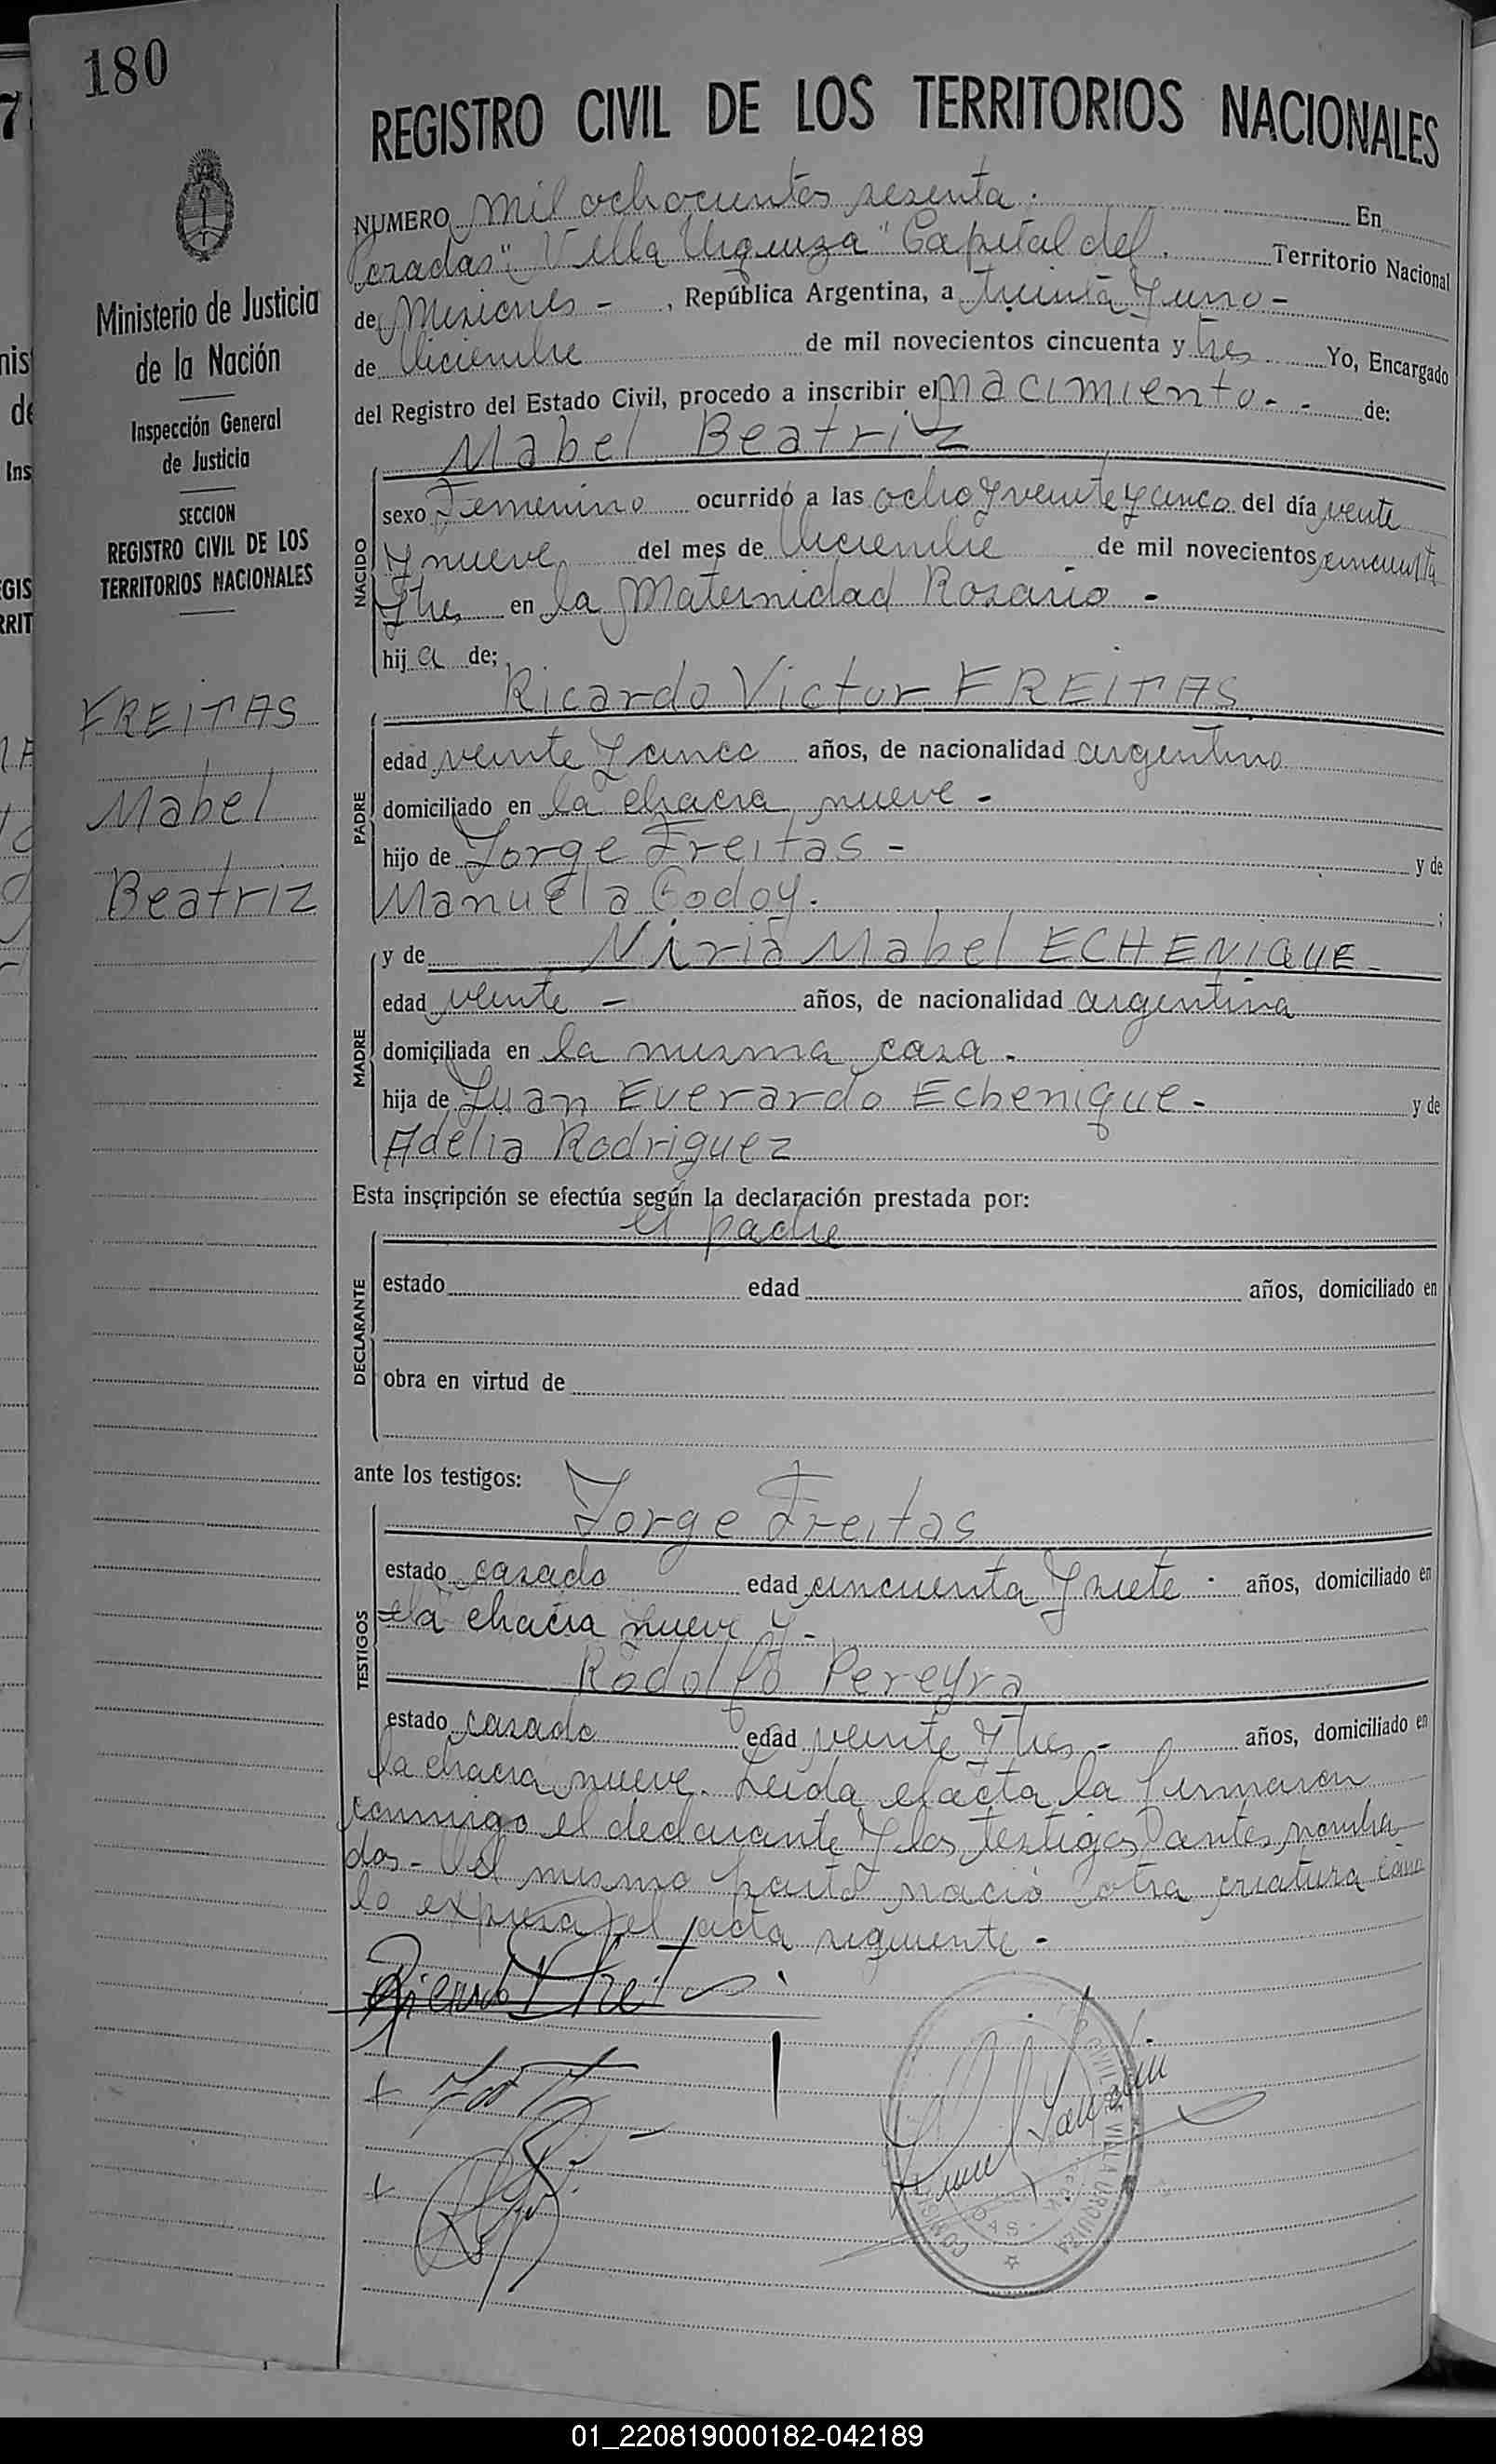 180
REGISTRO CIVIL DE LOS TERRITORIOS NACIONALES
NUMERO mil ochocientos sesenta. En
Posadas "Villa Urquiza" Capital del Territorio Nacional
de Misiones - , República Argentina, a treinta y uno -
de Diciembre de mil novecientos cincuenta y tres Yo, Encargado
del Registro del Estado Civil, procedo a inscribir el nacimiento - - de:
Mabel Beatriz
Ministerio de Justicia
de la Nación
Inspección General
de Justicia
SECCION
REGISTRO CIVIL DE LOS
TERRITORIOS NACIONALES
FREITAS
Mabel
Beatriz
NACIDO
sexo Femenino ocurrido a las ocho y veinte y cinco del día veinte
y nueve del mes de Diciembre de mil novecientos cincuenta
y tres en la Maternidad Rosario -
hij a de;
Ricardo Victor FREITAS
PADRE
edad veinte y cinco años, de nacionalidad argentino
domiciliado en la chacra nueve -
hijo de Jorge Freitas - y de
Manuela Godoy.
MADRE
y de Niria Mabel ECHENIQUE -
edad veinte - años, de nacionalidad argentina
domiciliada en la misma casa -
hija de Juan Everardo Echenique - y de
Adelia Rodriguez
Esta inscripción se efectúa según la declaración prestada por:
el padre
DECLARANTE
estado edad años, domiciliado en
obra en virtud de
ante los testigos:
Jorge Freitas
TESTIGOS
estado casado edad cincuenta y siete - años, domiciliado en
la chacra nueve y -
Rodolfo Pereyra
estado casado edad veinte y tres - años, domiciliado en
la chacra nueve. Leida el acta la firmaron
conmigo el declarante y los testigos antes nombra
dos - Del mismo parto nació otra criatura como
lo expresa el acta siguiente -
VILLA URQUIZA
01_220819000182-042189